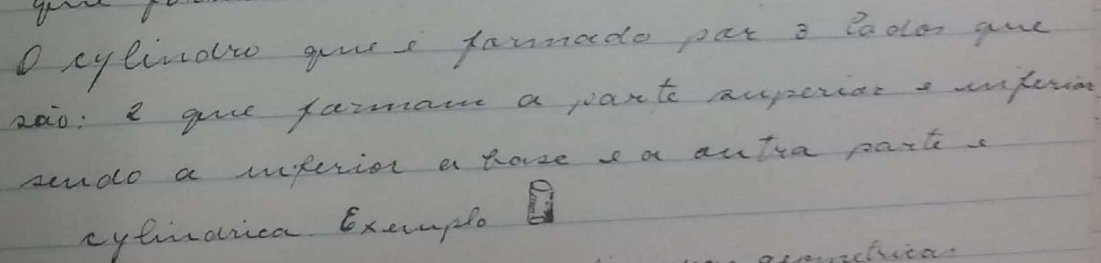 que
O cylindro que e formado por 3 lados que
são: 2 que formam a parte superior e inferior
sendo a inferior a base e a outra parte e
cylindrica Exemplo
geometricas